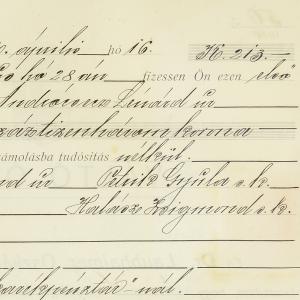 április hó 16. K. 213.-
hó 28 án fizessen Ön ezen első
Lénárd úr
száztizenhárom korona
számolásba tudósítás nélkül.
úr Petrik Gyula s.k.
Halász Zsigmond s.k.
takarékpénztár" nál.